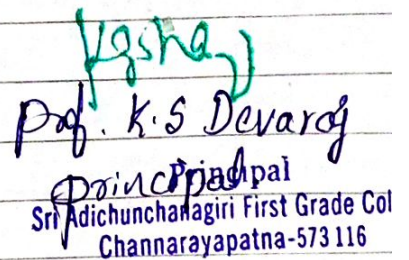 Prof. K.S Devaraj
Principal
Principal
Sri Adichunchanagiri First Grade Col
Channarayapatna-573 116